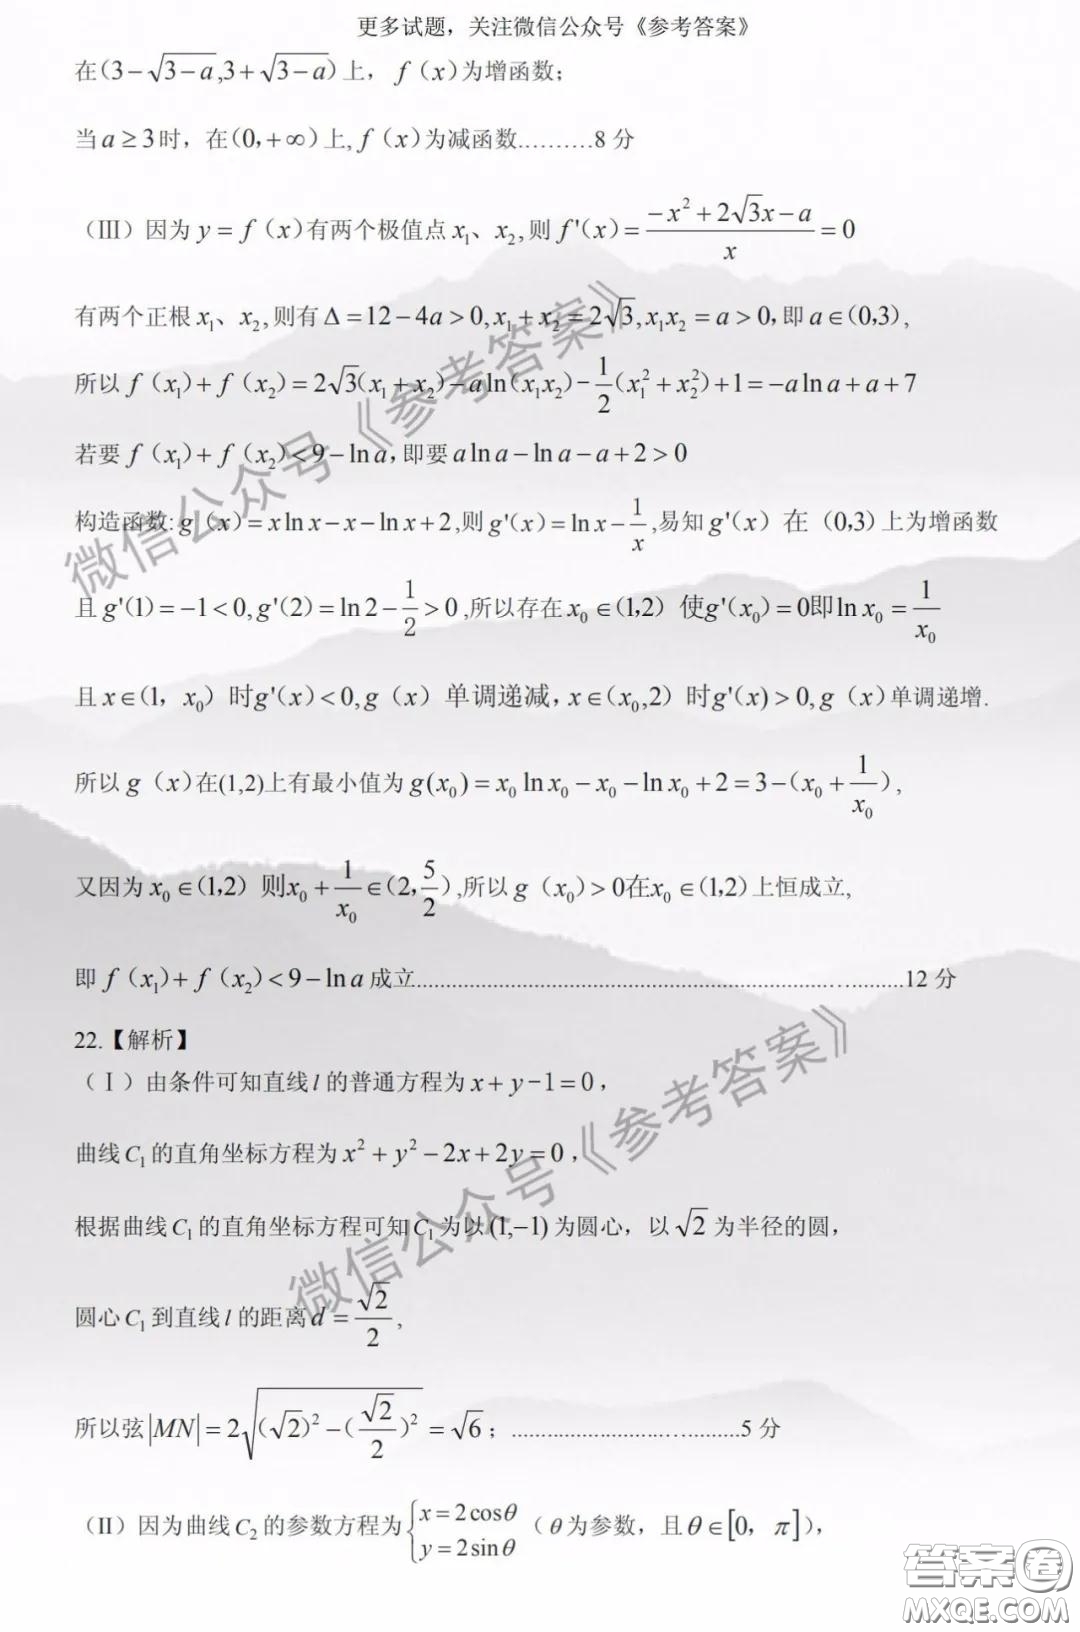 更多试题，关注微信公众号《参考答案》
在(3−√(3−a),3+√(3−a))上，f（x)为增函数；
当a≥3时，在(0,+∞)上,f（x)为减函数..........8 分
（III）因为y=f（x)有两个极值点x₁、x₂,则f'(x)=(−x²+2√3x−a)/x=0
有两个正根x₁、x₂,则有Δ=12−4a>0,x₁+x₂=2√3,x₁x₂=a>0,即a∈(0,3),
所以f（x₁)+f（x₂)=2√3(x₁+x₂)−aln(x₁x₂)−1/2(x₁²+x₂²)+1=−alna+a+7
若要f（x₁)+f（x₂)<9−lna,即要alna−lna−a+2>0
构造函数:g（x)=xlnx−x−lnx+2,则g'(x)=lnx−1/x,易知g'(x）在（0,3)上为增函数
且g'(1)=−1<0,g'(2)=ln2−1/2>0,所以存在x₀∈(1,2）使g'(x₀)=0即lnx₀=1/x₀
且x∈(1，x₀）时g'(x)<0,g（x）单调递减,x∈(x₀,2）时g'(x)>0,g（x)单调递增.
所以g（x)在(1,2)上有最小值为g(x₀)=x₀lnx₀−x₀−lnx₀+2=3−(x₀+1/x₀),
又因为x₀∈(1,2）则x₀+1/x₀∈(2,5/2),所以g（x₀)>0在x₀∈(1,2)上恒成立,
即f（x₁)+f（x₂)<9−lna成立..........12 分
22.【解析】
（Ⅰ）由条件可知直线l的普通方程为x+y−1=0，
曲线C₁的直角坐标方程为x²+y²−2x+2y=0，
根据曲线C₁的直角坐标方程可知C₁为以(1,−1)为圆心，以√2为半径的圆，
圆心C₁到直线l的距离d=√2/2,
所以弦|MN|=2√((√2)²−(√2/2)²)=√6；..........5 分
（II）因为曲线C₂的参数方程为{x=2cosθ y=2sinθ（θ为参数，且θ∈[0，π]），
微信公众号《参考答案》
微信公众号《参考答案》
答案卷
MXQE.COM